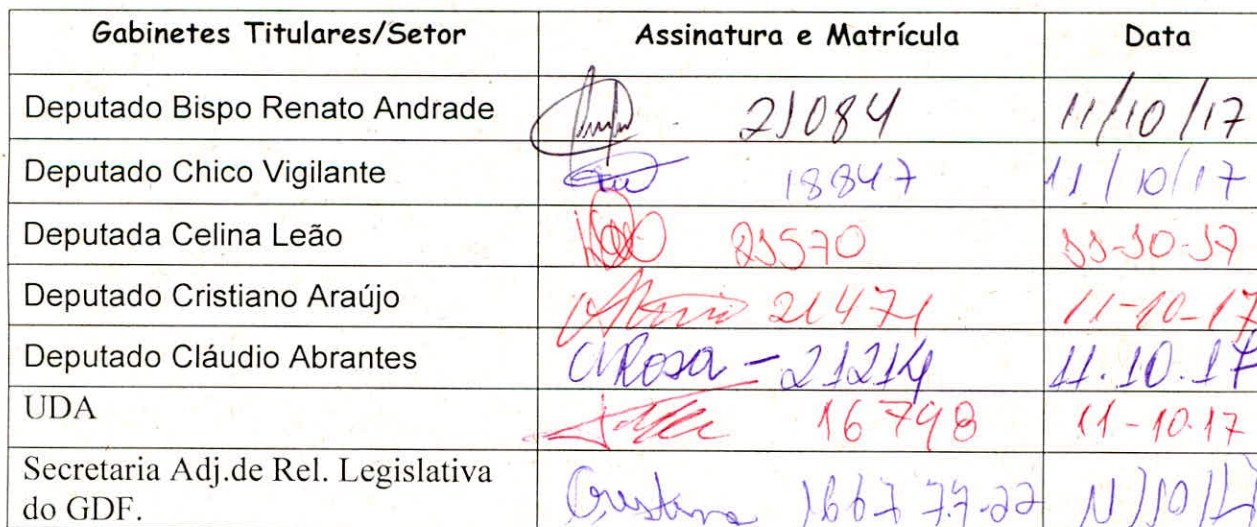 Gabinetes Titulares/Setor Assinatura e Matrícula Data
Deputado Bispo Renato Andrade 21084 11/10/17
Deputado Chico Vigilante 18847 11/10/17
Deputada Celina Leão 21570 11-10-17
Deputado Cristiano Araújo 21471 11-10-17
Deputado Cláudio Abrantes CRosa - 21214 11.10.17
UDA 16798 11-10-17
Secretaria Adj.de Rel. Legislativa
do GDF. Cristina 11/10/17